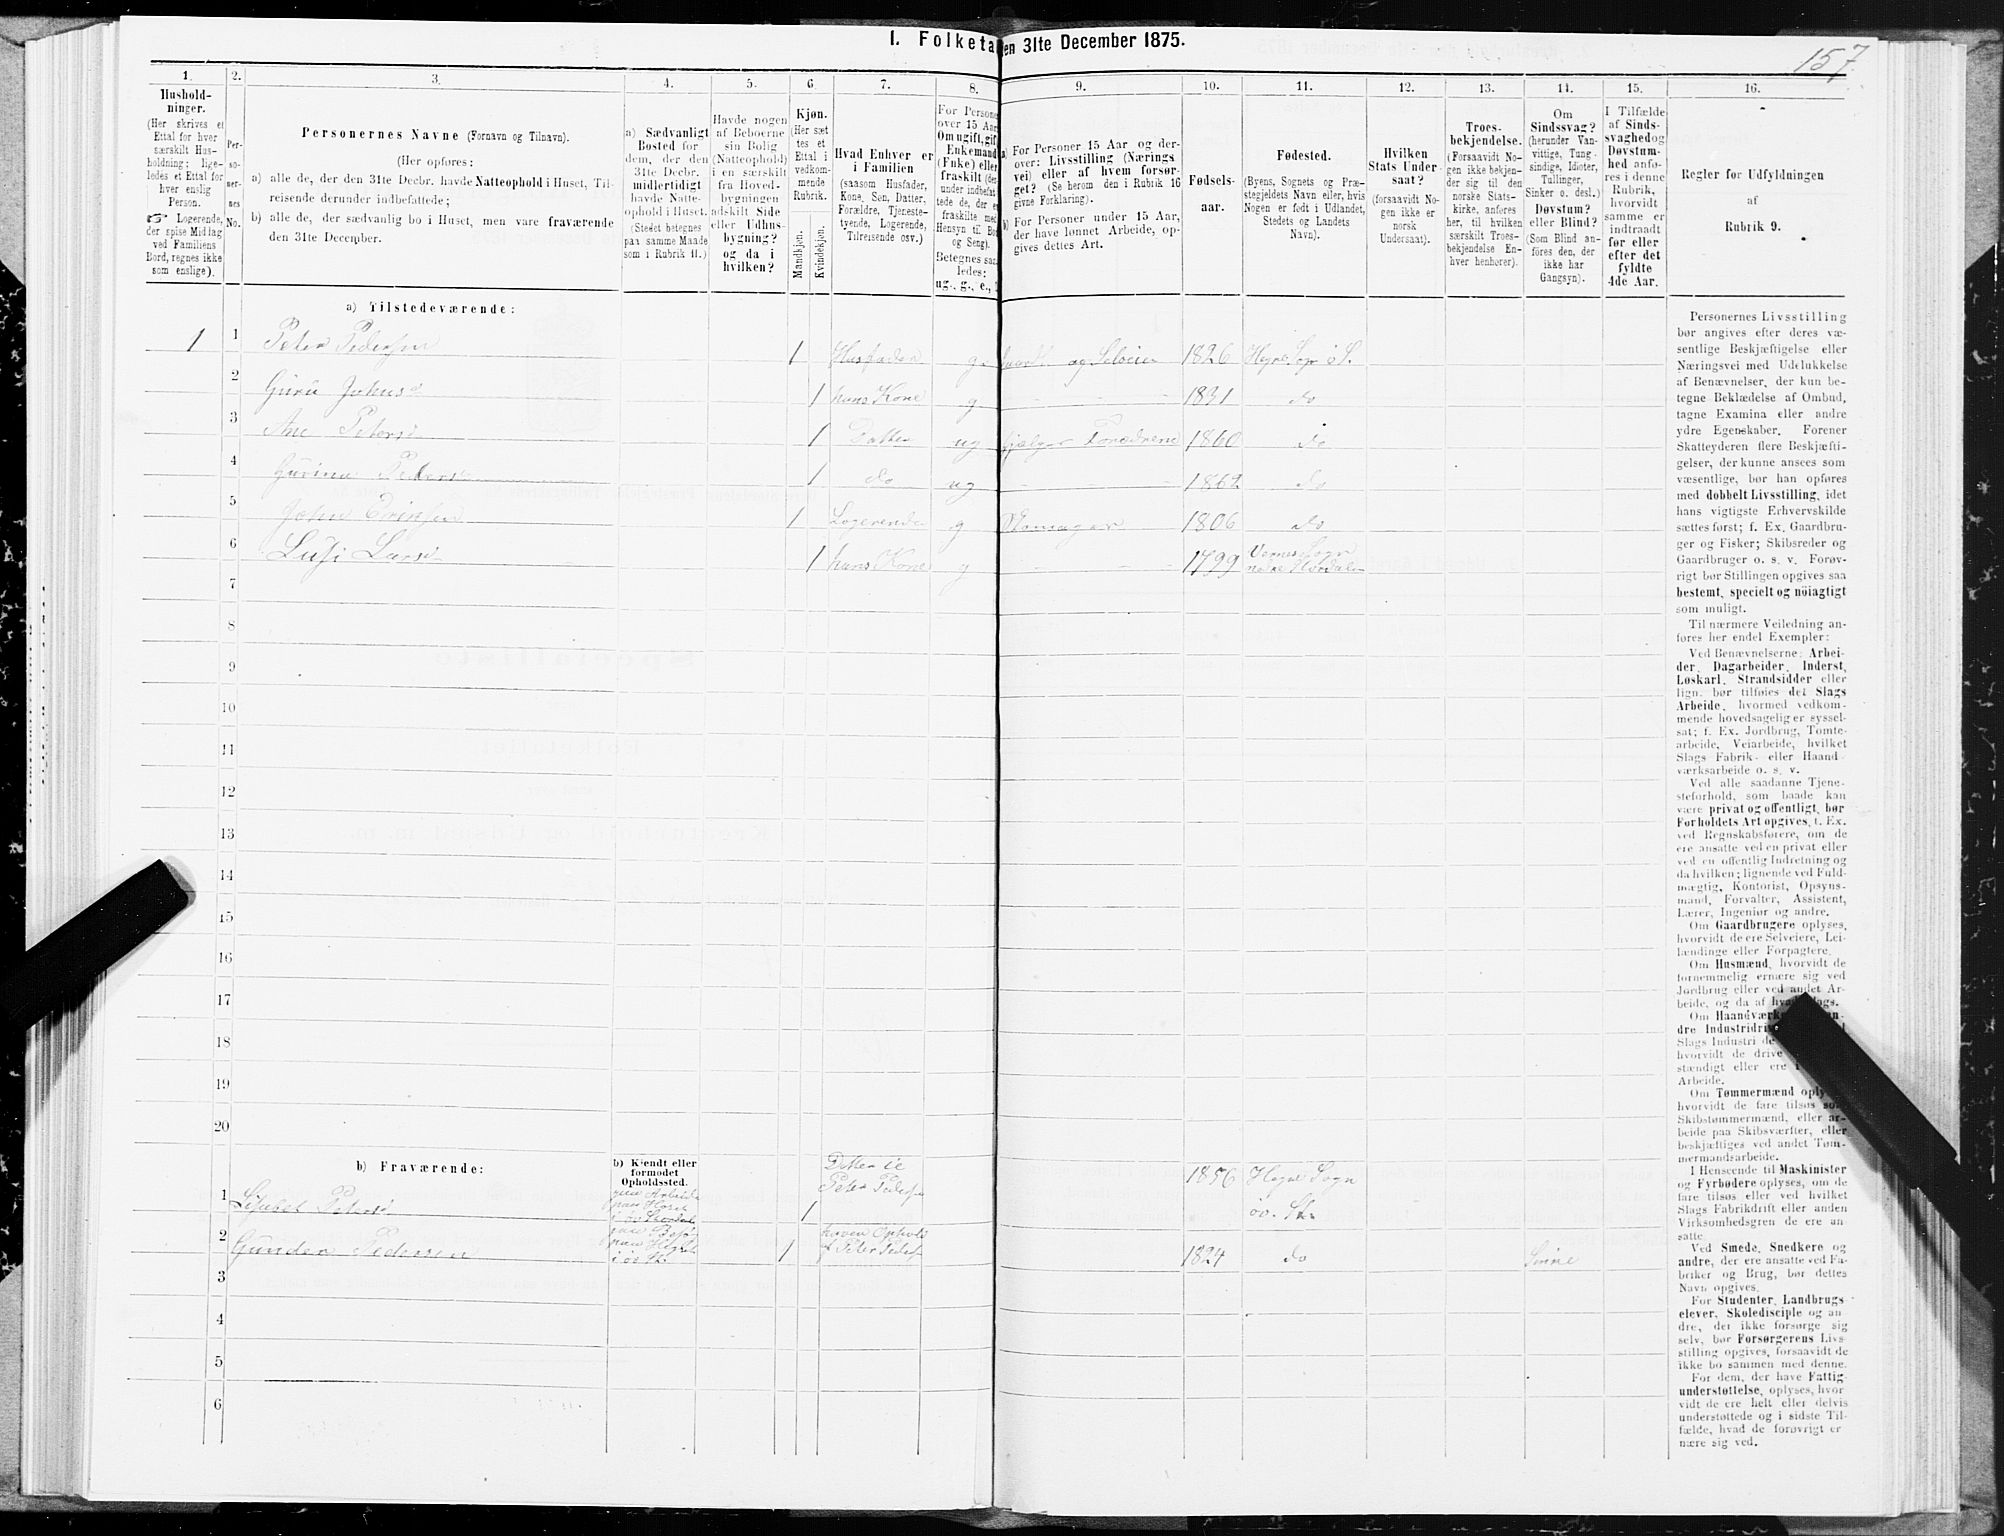 I. Folketal den 31te December 1875.
157
1.
2.
3.
4.
5.
6.
7.
8.
9.
10.
11.
12.
13.
14.
15.
16.
Hushold-
ninger.
(Her skrives et
Ettal for hver
særskilt Hus-
holdning; lige-
ledes et Ettal for
hver enslig
Person.
☞ Logerende,
der spise Middag
ved Familiens
Bord, regnes ikke
som enslige).
Per-
so-
ner-
nes
No.
Personernes Navne (Fornavn og Tilnavn).
(Her opføres:
a) alle de, der den 31te Decbr. havde Natteophold i Huset, Til-
reisende derunder indbefattede;
b) alle de, der sædvanlig bo i Huset, men vare fraværende
den 31te December.
a) Sædvanligt
Bosted for
dem, der den
31te Decbr.
midlertidigt
havde Natte-
ophold i Huset.
(Stedet betegnes
paa samme Maade
som i Rubrik 11.)
Havde nogen
af Beboerne
sin Bolig
(Natteophold)
i en særskilt
fra Hoved-
bygningen
adskilt Side
eller Udhus-
bygning?
og da i
hvilken?
Kjøn.
(Her sæt
tes et
Ettal i
vedkom-
mende
Rubrik.
Mandkjøn.
Kvindekjøn.
Hvad Enhver er
i Familien
(saasom Husfader,
Kone, Søn, Datter,
Forældre, Tjeneste-
tyende, Logerende,
Tilreisende osv.)
For Persone
over 15 Aar
Om ugift, gif
Enkemand
(Enke) eller
fraskilt (der
under indbefat
tede de, der e
fraskilte med
Hensyn til Bo
og Seng).
Betegnes saa
ledes:
ug., g., e.,
a) For Personer 15 Aar og der-
over: Livsstilling (Nærings
vei) eller af hvem forsør-
get? (Se herom den i Rubrik 16
givne Forklaring).
b) For Personer under 15 Aar,
der have lønnet Arbeide, op-
gives dettes Art.
Fødsels-
aar.
Fødested.
(Byens, Sognets og Præ-
stegjeldets Navn eller, hvis
Nogen er født i Udlandet,
Stedets og Landets
Navn).
Hvilken
Stats Under
saat?
(forsaavidt No-
gen ikke er
norsk
Undersaat).
Troes-
bekjendelse.
(Forsaavidt No-
gen ikke bekjen-
der sig til den
norske Stats-
kirke, anføres
her, til hvilken
særskilt Troes-
bekjendelse En-
hver henhører).
Om
Sindssvag?
(herunder Van-
vittige, Tung-
sindige, Idioter,
Tullinger,
Sinker o. desl.)
Døvstum?
eller Blind?
(Som Blind an-
føres den, der
ikke har
Gangsyn).
I Tilfælde
af Sinds-
svaghed og
Døvstum-
hed anfø-
res i denne
Rubrik,
hvorvidt
samme er
indtraadt
før eller
efter det
fyldte
4de Aar.
Regler for Udfyldningen
af
Rubrik 9.
a) Tilstedeværende:
1 1 Peter Pedersen 1 Husfader g og Selveier 1826 Hegre Sogn i S.
2 Guru Johns 1 hans Kone g 1831 do
3 Ane Peters 1 Datter ug hjælper Forældrene 1860 do
4 Gurina Peders 1 do ug 1862 do
5 John 1 Logerende g Skomager 1806 do
6 Lusi Lars 1 hans Kone g 1799 Vernes Sogn
nedre
7
8
9
10
11
12
13
14
15
16
17
18
19
20
b) Fraværende:
b) Kjendt eller
formodet
Opholdssted.
1 Lisabet Peters paa Arbeide
i øv Stordal 1 Datter
Peter Peders 1856 Hegre Sogn
øv. St.
2 Gunder Pedersen paa
i øv St. 1 Ophold
Peter 1824 do
3
4
5
6
Personernes Livsstilling
bør angives efter deres væ-
sentlige Beskjæftigelse eller
Næringsvei med Udelukkelse
af Benævnelser, der kun be-
tegne Beklædelse af Ombud,
tagne Examina eller andre
ydre Egenskaber. Forener
Skatteyderen flere Beskjæfti-
gelser, der kunne ansees som
væsentlige, bør han opføres
med dobbelt Livsstilling, idet
hans vigtigste Erhvervskilde
sættes først; f. Ex. Gaardbru-
ger og Fisker; Skibsreder og
Gaardbruger o. s. v. Forøv-
rigt bør Stillingen opgives saa
bestemt, specielt og nöiagtigt
som muligt.
Til nærmere Veiledning an-
føres her endel Exempler:
Ved Benævnelserne: Arbei-
der, Dagarbeider, Inderst,
Løskarl, Strandsidder eller
lign. bør tilføies det Slags
Arbeide, hvormed vedkom-
mende hovedsagelig er syssel-
sat; f. Ex. Jordbrug, Tomte-
arbeide, Veiarbeide, hvilket
Slags Fabrik- eller Haand-
værksarbeide o. s. v.
Ved alle saadanne Tjene-
steforhold, som baade kan
være privat og offentligt, bør
Forholdets Art opgives, f. Ex.
ved Regnskabsførere, om de
ere ansatte ved en privat eller
ved en offentlig Indretning og
da hvilken; lignende ved Fuld-
mægtig, Kontorist, Opsyns-
mand, Forvalter, Assistent,
Lærer, Ingeniør og andre.
Om Gaardbrugere oplyses,
hvorvidt de ere Selveiere, Lei-
lændinge eller Forpagtere.
Om Husmænd, hvorvidt de
fornemmelig ernære sig ved
Jordbrug eller ved andet Ar-
beide, og da af hvad Slags.
Om Haandværk
dre Industridri
Slags Industri de
hvorvidt de drive
stændigt eller ere
Arbeide.
Om Tømmermænd oply
hvorvidt de fare tilsøs som
Skibstømmermænd, eller ar-
beide paa Skibsværfter, eller
beskjæftiges ved andet Tøm-
mermandsarbeide.
I Henseende til Maskinister
og Fyrbødere oplyses, om de
fare tilsøs eller ved hvilket
Slags Fabrikdrift eller anden
Virksomhedsgren de ere an-
satte.
Ved Smede, Snedkere og
andre, der ere ansatte ved Fa-
briker og Brug, bør dettes
Navn opgives.
For Studenter, Landbrugs
elever, Skoledisciple og an-
dre, der ikke forsørge sig
selv, bør Forsørgerens Livs-
stilling opgives, forsaavidt de
ikke bo sammen med denne.
For dem, der have Fattig-
understøttelse, oplyses, hvor
vidt de ere helt eller delvis
understøttede og i sidste Til-
fælde, hvad de forøvrigt er
nære sig ved.